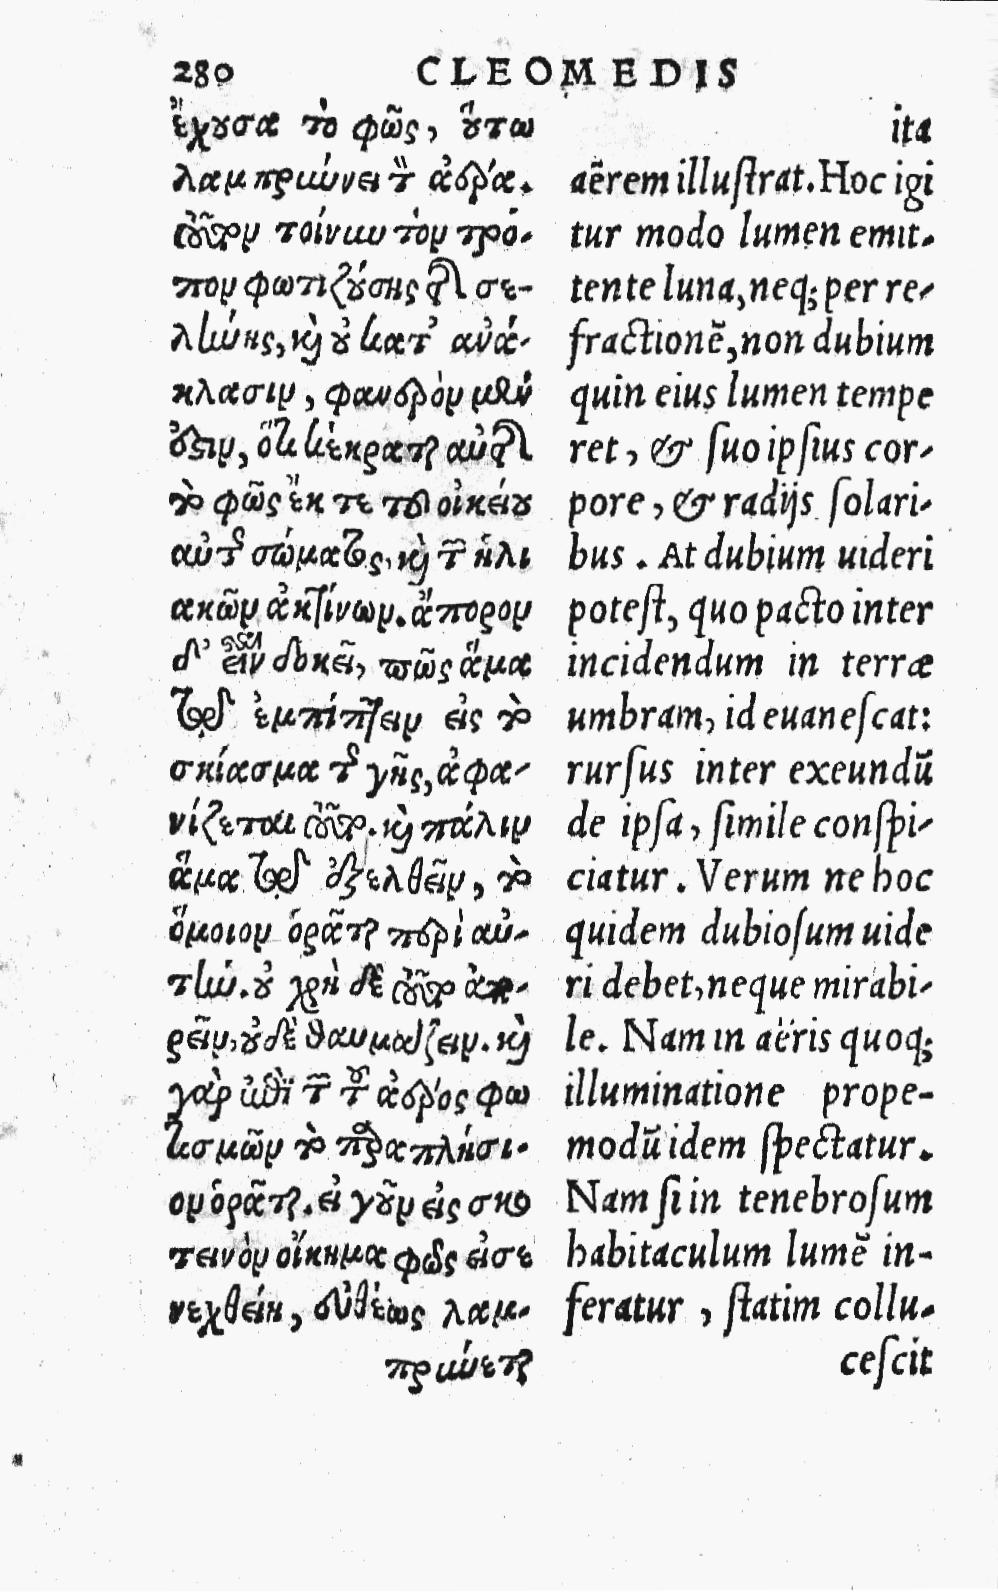 280 CLEOMEDIS
ἔχουσα τὸ φῶς, οὕτω
λαμπρύνει τ̀ ἀέρα.
τοῦτον τοίνυν τὸν τρό-
πον φωτιζούσης τῆς σε-
λήνης, καὶ οὐ κατ' ἀνά-
κλασιν, φανερὸν μὲν
ὅτι κέκραται αὐτῆς
τὸ φῶς ἔκ τε τοῦ οἰκείου
αὐτῆς σώματος, καὶ τῶν ἡλι
ακῶν ἀκτίνων. ἄπορον
δ' εἶναι δοκεῖ, πῶς ἅμα
τῷ ἐμπίπτειν εἰς τὸ
σκίασμα τῆς γῆς, ἀφα-
νίζεται τοῦτο. καὶ πάλιν
ἅμα τῷ ἐξελθεῖν, τὸ
ὅμοιον ὁρᾶται περὶ αὐ-
τήν. οὐ χρὴ δὲ τοῦτο ἀπο-
ρεῖν, οὐδὲ θαυμάζειν. καὶ
γὰρ ἐπὶ τῶν τοῦ ἀέρος φω
τισμῶν τὸ παραπλήσι-
ον ὁρᾶται. εἰ γοῦν εἰς σκο
τεινὸν οἴκημα φῶς εἰσε
νεχθείη, εὐθέως λαμ-
πρύνεται
ita
aërem illuſtrat. Hoc igi
tur modo lumen emit-
tente luna, neq; per re-
fractionẽ, non dubium
quin eius lumen tempe
ret, & ſuo ipſius cor-
pore, & radijs ſolari-
bus. At dubium uideri
poteſt, quo pacto inter
incidendum in terræ
umbram, id euaneſcat:
rurſus inter exeundũ
de ipſa, ſimile conſpi-
ciatur. Verum ne hoc
quidem dubioſum uide
ri debet, neque mirabi-
le. Nam in aëris quoq;
illuminatione prope-
modũ idem ſpectatur.
Nam ſi in tenebroſum
habitaculum lumẽ in-
feratur, ſtatim collu-
ceſcit